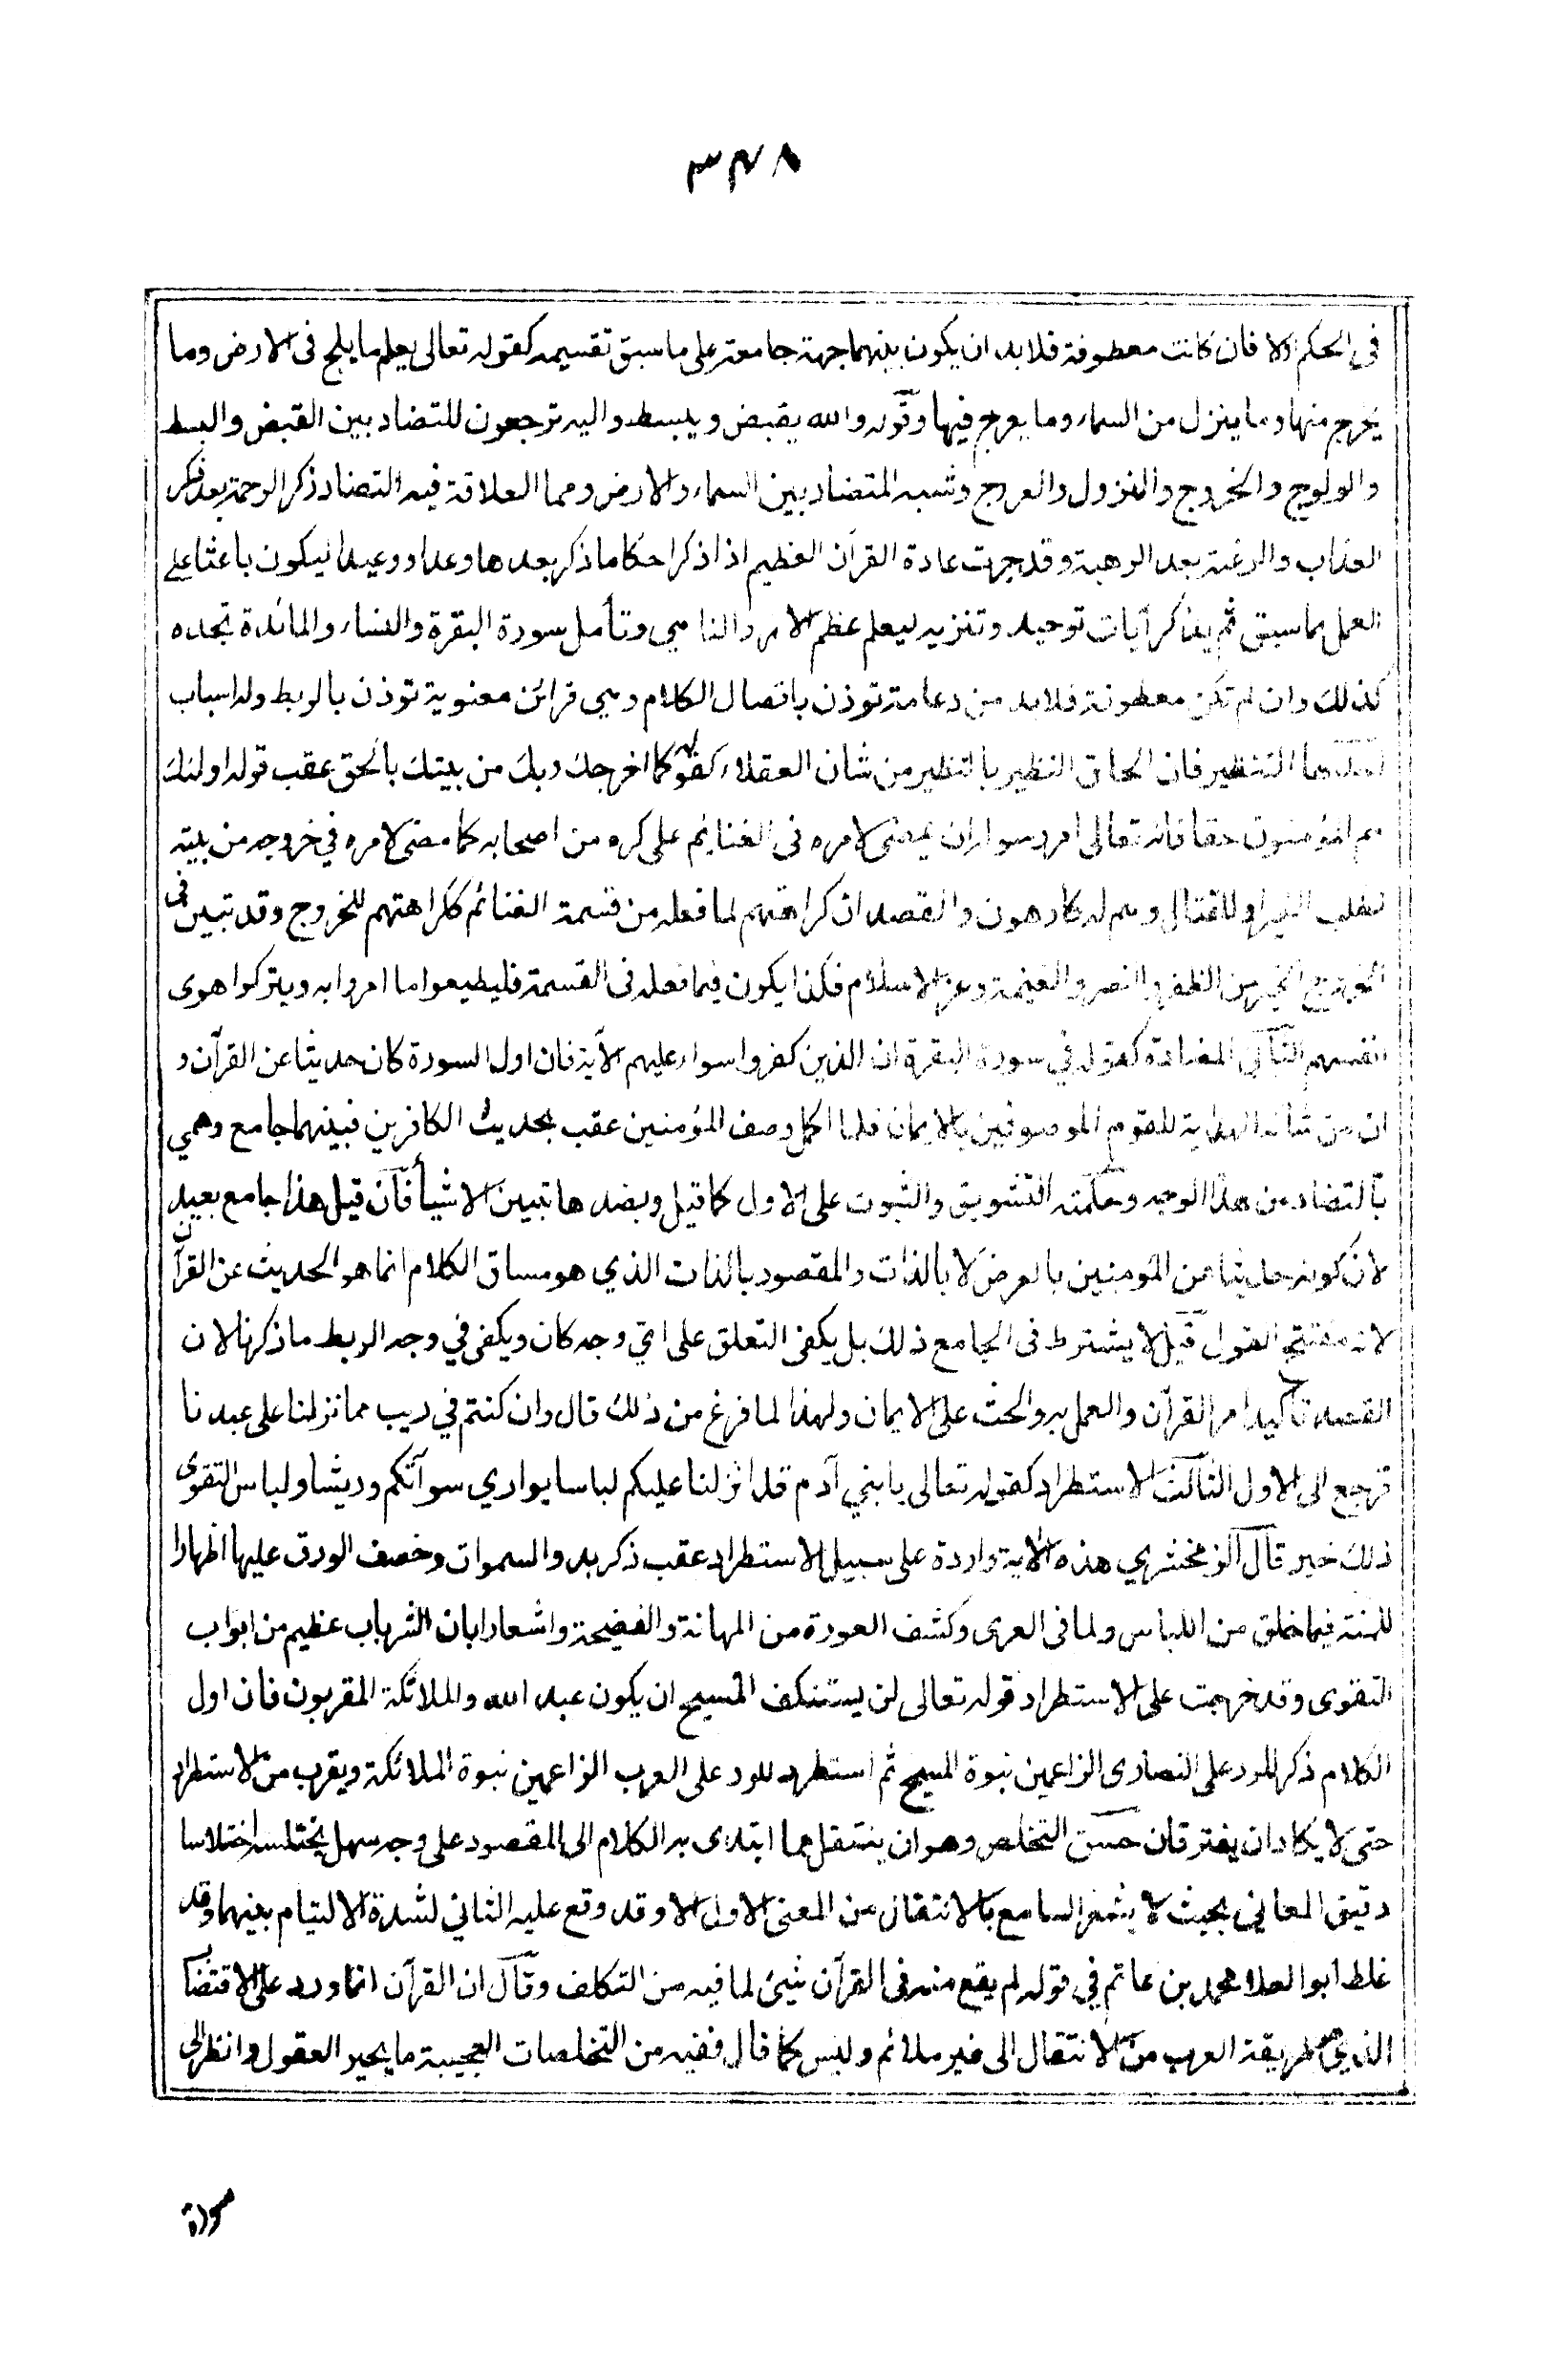 ٣٤٨
فى الحكم اولا فان كانت معطوفة فلا بد ان يكون بينهما جهة جامعة على ما سبق تقسيمه كقوله تعالى يعلم ما يلج فى الارض وما
يخرج منها وما ينزل من السماء وما يعرج فيها وقوله والله يقبض ويبسط واليه ترجعون للتضاد بين القبض والبسط
والولوج والخروج والنزول والعروج وشبه المتضاد بين السماء والارض ومما العلاقة فيه التضاد ذكر الرحمة بعد ذكر
العذاب والرغبة بعد الرهبة وقد جرت عادة القرآن العظيم اذا ذكر احكاما ذكر بعدها وعدا ووعيدا ليكون باعثا على
العمل بما سبق ثم يذكر آيات توحيد وتنزيه ليعلم عظم الامر والناهي وتأمل سورة البقرة والنساء والمائدة تجده
كذلك وان لم تكن معطوفة فلا بد من دعامة توذن باتصال الكلام وهي قرائن معنوية توذن بالربط وله اسباب
احدها التنظير فان الحاق النظير بالنظير من شان العقلاء كقوله كما اخرجك ربك من بيتك بالحق عقب قوله اولئك
هم المؤمنون حقا فانه تعالى امر رسوله ان يمضى لامره فى الغنايم على كره من اصحابه كما مضى لامره في خروجه من بيته
لطلب العير او للقتال وهم له كارهون والقصد ان كراهتهم لما فعله من قسمة الغنائم ككراهتهم للخروج وقد تبين فى
الخروج الخير من الظفر والنصر والغنيمة وعز الاسلام فكذا يكون فيما فعله فى القسمة فليطيعوا ما امروا به ويتركوا هوى
انفسهم الثاني المضادة كقوله في سورة البقرة ان الذين كفروا سواء عليهم الآية فان اول السورة كان حديثا عن القرآن و
ان من شانه الهداية للقوم الموصوفين بالايمان فلما اكمل وصف المؤمنين عقب بحديث الكافرين فبينهما جامع وهمي
بالتضاد من هذا الوجه وحكمته التشويق والثبوت على الاول كما قيل وبضدها تتبين الاشياء فان قيل هذا جامع بعيد
لان كونه حديثا عن المؤمنين بالعرض لا بالذات والمقصود بالذات الذي هو مساق الكلام انما هو الحديث عن القرآن
لانه مفتتح القول قيل لا يشترط فى الجامع ذلك بل يكفى التعلق على اي وجه كان ويكفى في وجه الربط ما ذكرنا لان
القصد تأكيد امر القرآن والعمل به والحث على الايمان ولهذا لما فرغ من ذلك قال وان كنتم في ريب مما نزلنا على عبدنا
فرجع الى الاول الثالث الاستطراد كقوله تعالى يا بني آدم قد انزلنا عليكم لباسا يواري سوآتكم وريشا ولباس التقوى
ذلك خير قال الزمخشري هذه الاية واردة على سبيل الاستطراد عقب ذكر بدو السموات وخصف الورق عليها اظهارا
للمنة فيما خلق من اللباس ولما فى العرى وكشف العورة من المهانة والفضيحة واشعارا بان الستر باب عظيم من ابواب
التقوى وقد خرجت على الاستطراد قوله تعالى لن يستنكف المسيح ان يكون عبد الله والملائكة المقربون فان اول
الكلام ذكر للرد على النصارى الزاعمين نبوة المسيح ثم استطرد للرد على العرب الزاعمين نبوة الملائكة ويقرب من الاستطراد
حتى لا يكادان يفترقان حسن التخلص وهو ان ينتقل مما ابتدى به الكلام الى المقصود على وجه سهل يختلسه اختلاسا
دقيق المعاني بحيث لا يشعر السامع بالانتقال من المعنى الاول الا وقد وقع عليه الثاني لشدة الالتيام بينهما وقد
غلط ابو العلاء محمد بن غانم في قوله لم يقع منه فى القرآن شيئ لما فيه من التكلف وقال ان القرآن انما ورد على الاقتضاب
الذي هو طريقة العرب من الانتقال الى غير ملائم وليس كما قال ففيه من التخلصات العجيبة ما يحير العقول وانظر الى